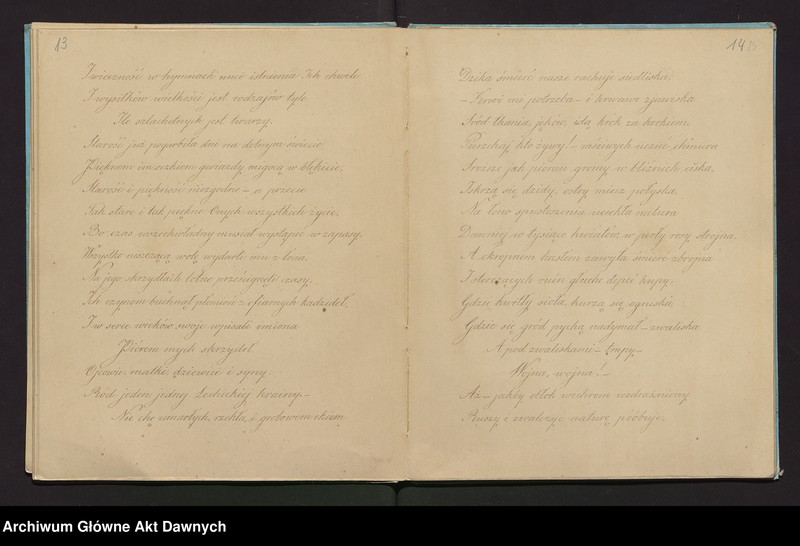 13
I wieczność w hymnach nuci istnienia Ich chwile
I wysiłków wielkość jest rodzajów tyle
Ile szlachetnych jest twarzy.
Starość jest pogarbiła dni na dolnym świecie
Pięknem im oczkiem gwiazdy migocą w błękicie,
Starość i piękność niezgodne – a przecie
Tak stare i tak piękne Onych wszystkich życie.
Bo czas wszechwładny musiał wystąpić w zapasy.
Wszystko niszczącą wolę wydarli mu z łona.
Na jego skrzydłach lotne prześcignęli czasy,
Ich czynem buchnął płomień z ofiarnych kadzideł,
I w serce wieków swoje wpisali imiona
Piórem mych skrzydeł
Ojcowie, matki, dziewice i syny.
Ród jeden jednej Lechickiej krainy –
Nie chcę umarłych, rzekła, z grobowem
14
Dzika śmierć nasze rachuje siedliska.
– Krwi mi potrzeba – i krwawe zjawiska
Śród łkania, jęków, idą krok za krokiem.
Pierzchaj kto żywy! –
Sroższe jak piorun gromy w bliźnich ciska,
Iskrzą się dzidy, ostry miecz połyska.
Na łono spustoszenia uciekła natura
Dawniej w tysiące kwiatów, w perły rosy strojna.
A okropnem hasłem zawyła śmierć zbrojna
I sterczących ruin głuche depce kupy.
Gdzie kwitły sioła, kurzą się ogniska,
Gdzie się gród pychą nadymał – zwaliska
A pod zwaliskami – trupy –
Wojna, wojna! –
Aż – jakby obłok wichrem rozdrażniony
Ruszy i zwalczyć naturę próbuje.
Archiwum Główne Akt Dawnych